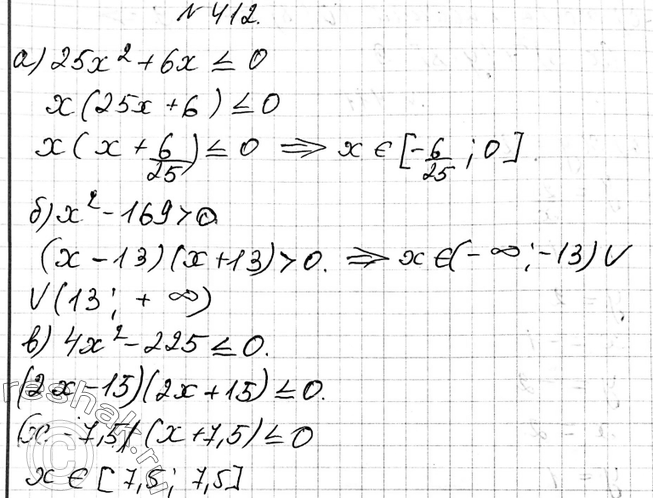 № 412.
а) 25x² + 6x ≤ 0
x(25x + 6) ≤ 0
x(x + 6/25) ≤ 0 ⇒ x ∈ [-6/25; 0]
б) x² - 169 > 0.
(x - 13)(x + 13) > 0. ⇒ x ∈ (-∞; -13) ∪
∪ (13; +∞)
в) 4x² - 225 ≤ 0.
(2x - 15)(2x + 15) ≤ 0.
(x - 7,5)(x + 7,5) ≤ 0
x ∈ [7,5; 7,5]
reshak.ru